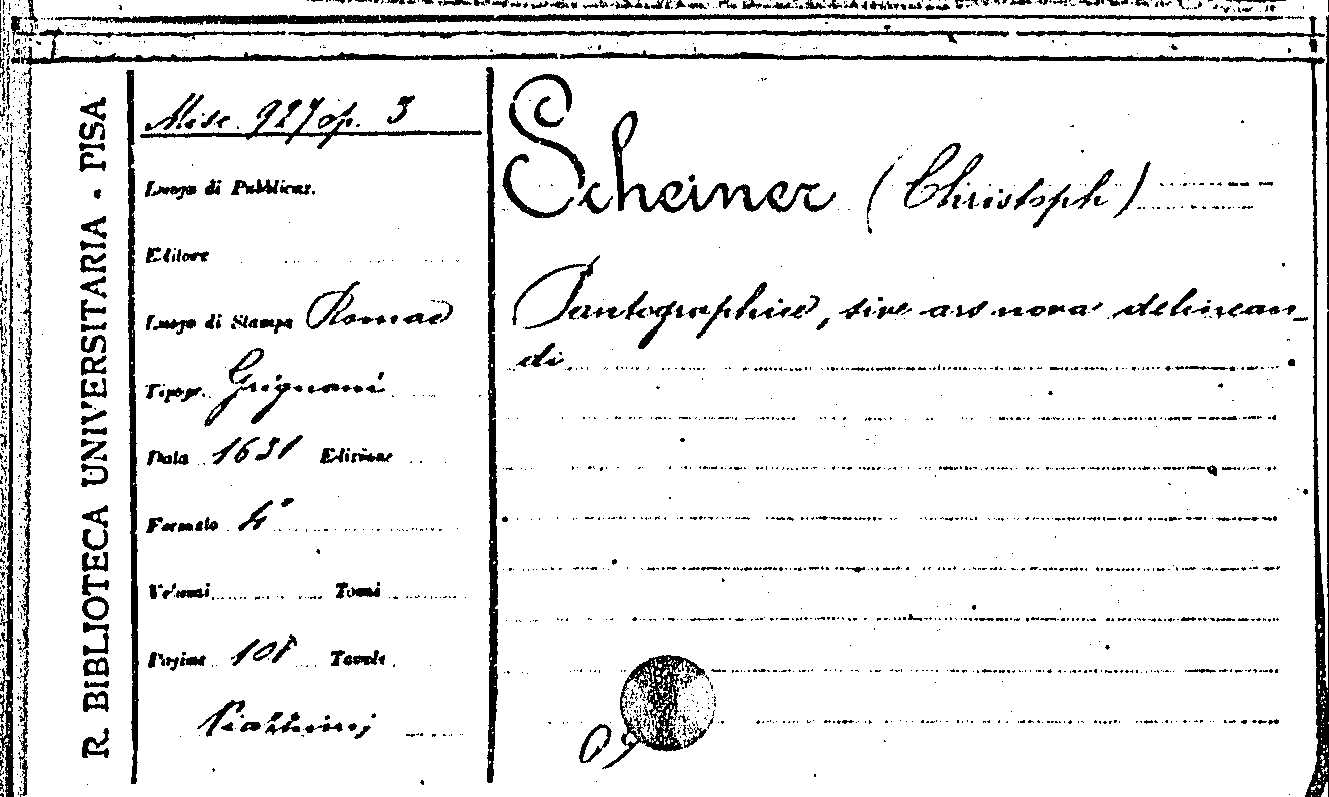 R. BIBLIOTECA UNIVERSITARIA - PISA
Misc. 927 op. 3
Luogo di Pubblicaz.
Editore
Luogo di Stampa Romae
Tipogr. Grignani
Data 1631 Edizione
Formato 4°
Volumi Tomi
Pagine 108 Tavole
Piazzini
Scheiner (Christoph)
Pantographice, sive ars nova delinean-
di